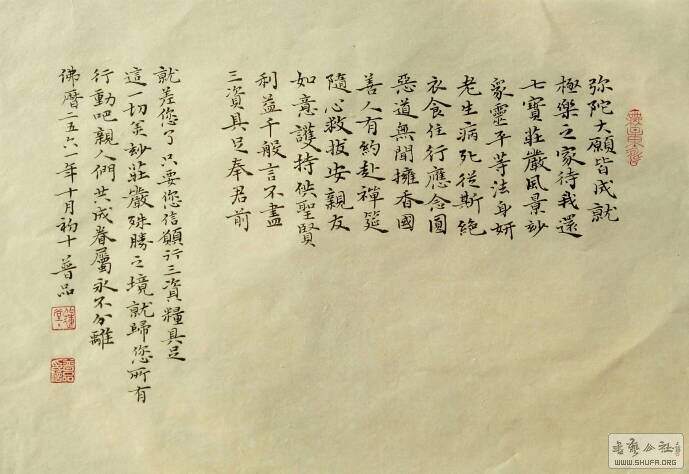 弥陀大願皆成就
極樂之家待我還
七寶莊嚴風景妙
眾靈平等法身妍
老生病死從斯絶
衣食住行應念圓
惡道無聞擁香國
善人有約赴禪筵
隨心救拔安親友
如意護持供聖賢
利益千般言不盡
三資具足奉君前
就差您了只要您信願行三資糧具足
這一切美妙莊嚴殊勝之境就歸您所有
行動吧親人們共成眷屬永不分離
佛曆二五六一年十月初十 普品
書藝公社
WWW.SHUFA.ORG